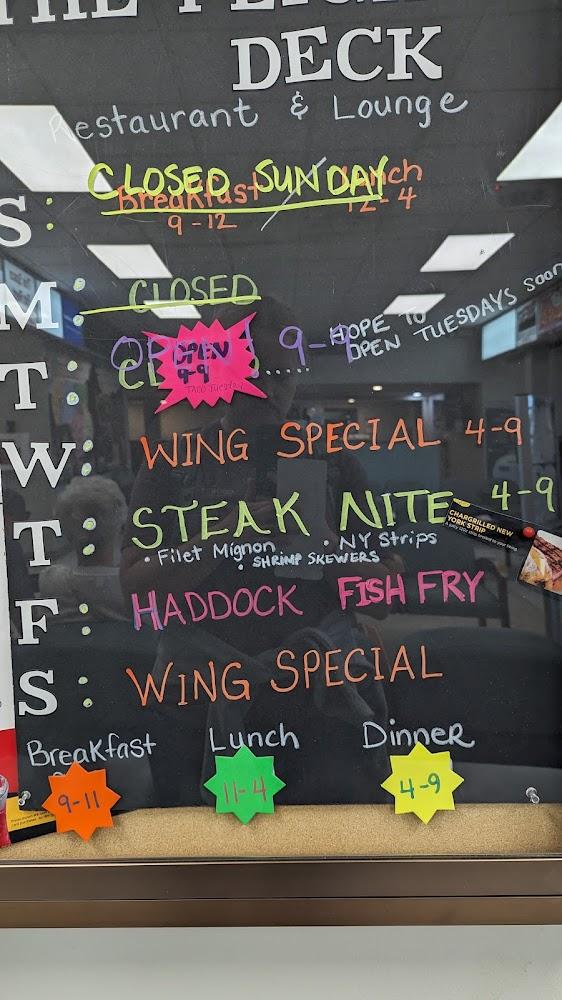 THE FLIGHT
DECK
Restaurant & Lounge
S: CLOSED SUNDAY
Breakfast / Lunch
9-12 12-4
M: CLOSED
HOPE TO
OPEN TUESDAYS SOON
T: OPEN! 9-9
OPEN
9-9
TACO Tuesday
W: WING SPECIAL 4-9
T: STEAK NITE 4-9
• Filet Mignon • NY Strips
• SHRIMP SKEWERS
CHARGRILLED NEW
YORK STRIP
F: HADDOCK FISH FRY
S: WING SPECIAL
Breakfast Lunch Dinner
9-11 11-4 4-9